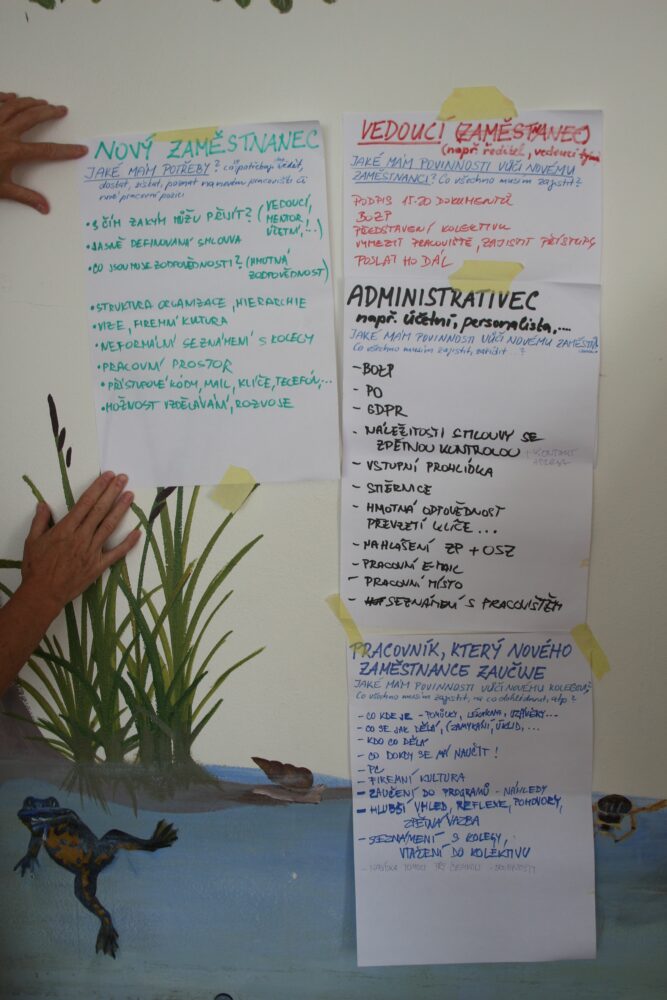 NOVÝ ZAMĚSTNANEC
JAKÉ MÁM POTŘEBY? co potřebuji vědět,
dostat, získat, poznat na novém pracovišti či
nové pracovní pozici
• S ČÍM ZA KÝM MŮŽU PŘIJÍT? (VEDOUCÍ,
MENTOR,
ÚČETNÍ,...)
• JASNĚ DEFINOVANÁ SMLOUVA
• CO JSOU MOJE ZODPOVĚDNOSTI? (HMOTNÁ
ZODPOVĚDNOST)
• STRUKTURA ORGANIZACE, HIERARCHIE
• VIZE, FIREMNÍ KULTURA
• NEFORMÁLNÍ SEZNÁMENÍ S KOLEGY
• PRACOVNÍ PROSTOR
• PŘÍSTUPOVÉ KÓDY, MAIL, KLÍČE, TELEFON,...
• MOŽNOST VZDĚLÁVÁNÍ, ROZVOJE
VEDOUCÍ (ZAMĚSTNANEC)
(např ředitel, vedoucí týmu
JAKÉ MÁM POVINNOSTI VŮČI NOVÉMU
ZAMĚSTNANCI? Co všechno musím zajistit?
PODPIS 15-20 DOKUMENTŮ
BOZP
PŘEDSTAVENÍ KOLEKTIVU
VYMEZIT PRACOVIŠTĚ, ZAJISTIT PŘÍSTUPY
POSLAT HO DÁL
ADMINISTRATIVEC
např. účetní, personalista,...
JAKÉ MÁM POVINNOSTI VŮČI NOVÉMU
Co všechno musím zajistit, zařídit...?
- BOZP
- PO
- GDPR
- NÁLEŽITOSTI SMLOUVY SE
ZPĚTNOU KONTROLOU
- VSTUPNÍ PROHLÍDKA
- SMĚRNICE
- HMOTNÁ ODPOVĚDNOST
PŘEVZETÍ KLÍČE...
- NAHLÁŠENÍ ZP + OSZ
- PRACOVNÍ E-MAIL
- PRACOVNÍ MÍSTO
- SEZNÁMENÍ S PRACOVIŠTĚM
PRACOVNÍK, KTERÝ NOVÉHO
ZAMĚSTNANCE ZAUČUJE
JAKÉ MÁM POVINNOSTI VŮČI NOVÉMU KOLEGOVI?
Co všechno musím zajistit, na co dohlédnout, atp?
- CO KDE JE - POMŮCKY, LÉKÁRNA, UZÁVĚRY...
- CO SE JAK DĚLÁ, (ZAMYKÁNÍ, ÚKLID,...
- KDO CO DĚLÁ
- CO DOKDY SE MÁ NAUČIT!
- PC
- FIREMNÍ KULTURA
- ZAUČENÍ DO PROGRAMŮ - NÁHLEDY
- HLUBŠÍ VHLED, REFLEXE, POHOVORY,
ZPĚTNÁ VAZBA
- SEZNÁMENÍ S KOLEGY,
VTAŽENÍ DO KOLEKTIVU